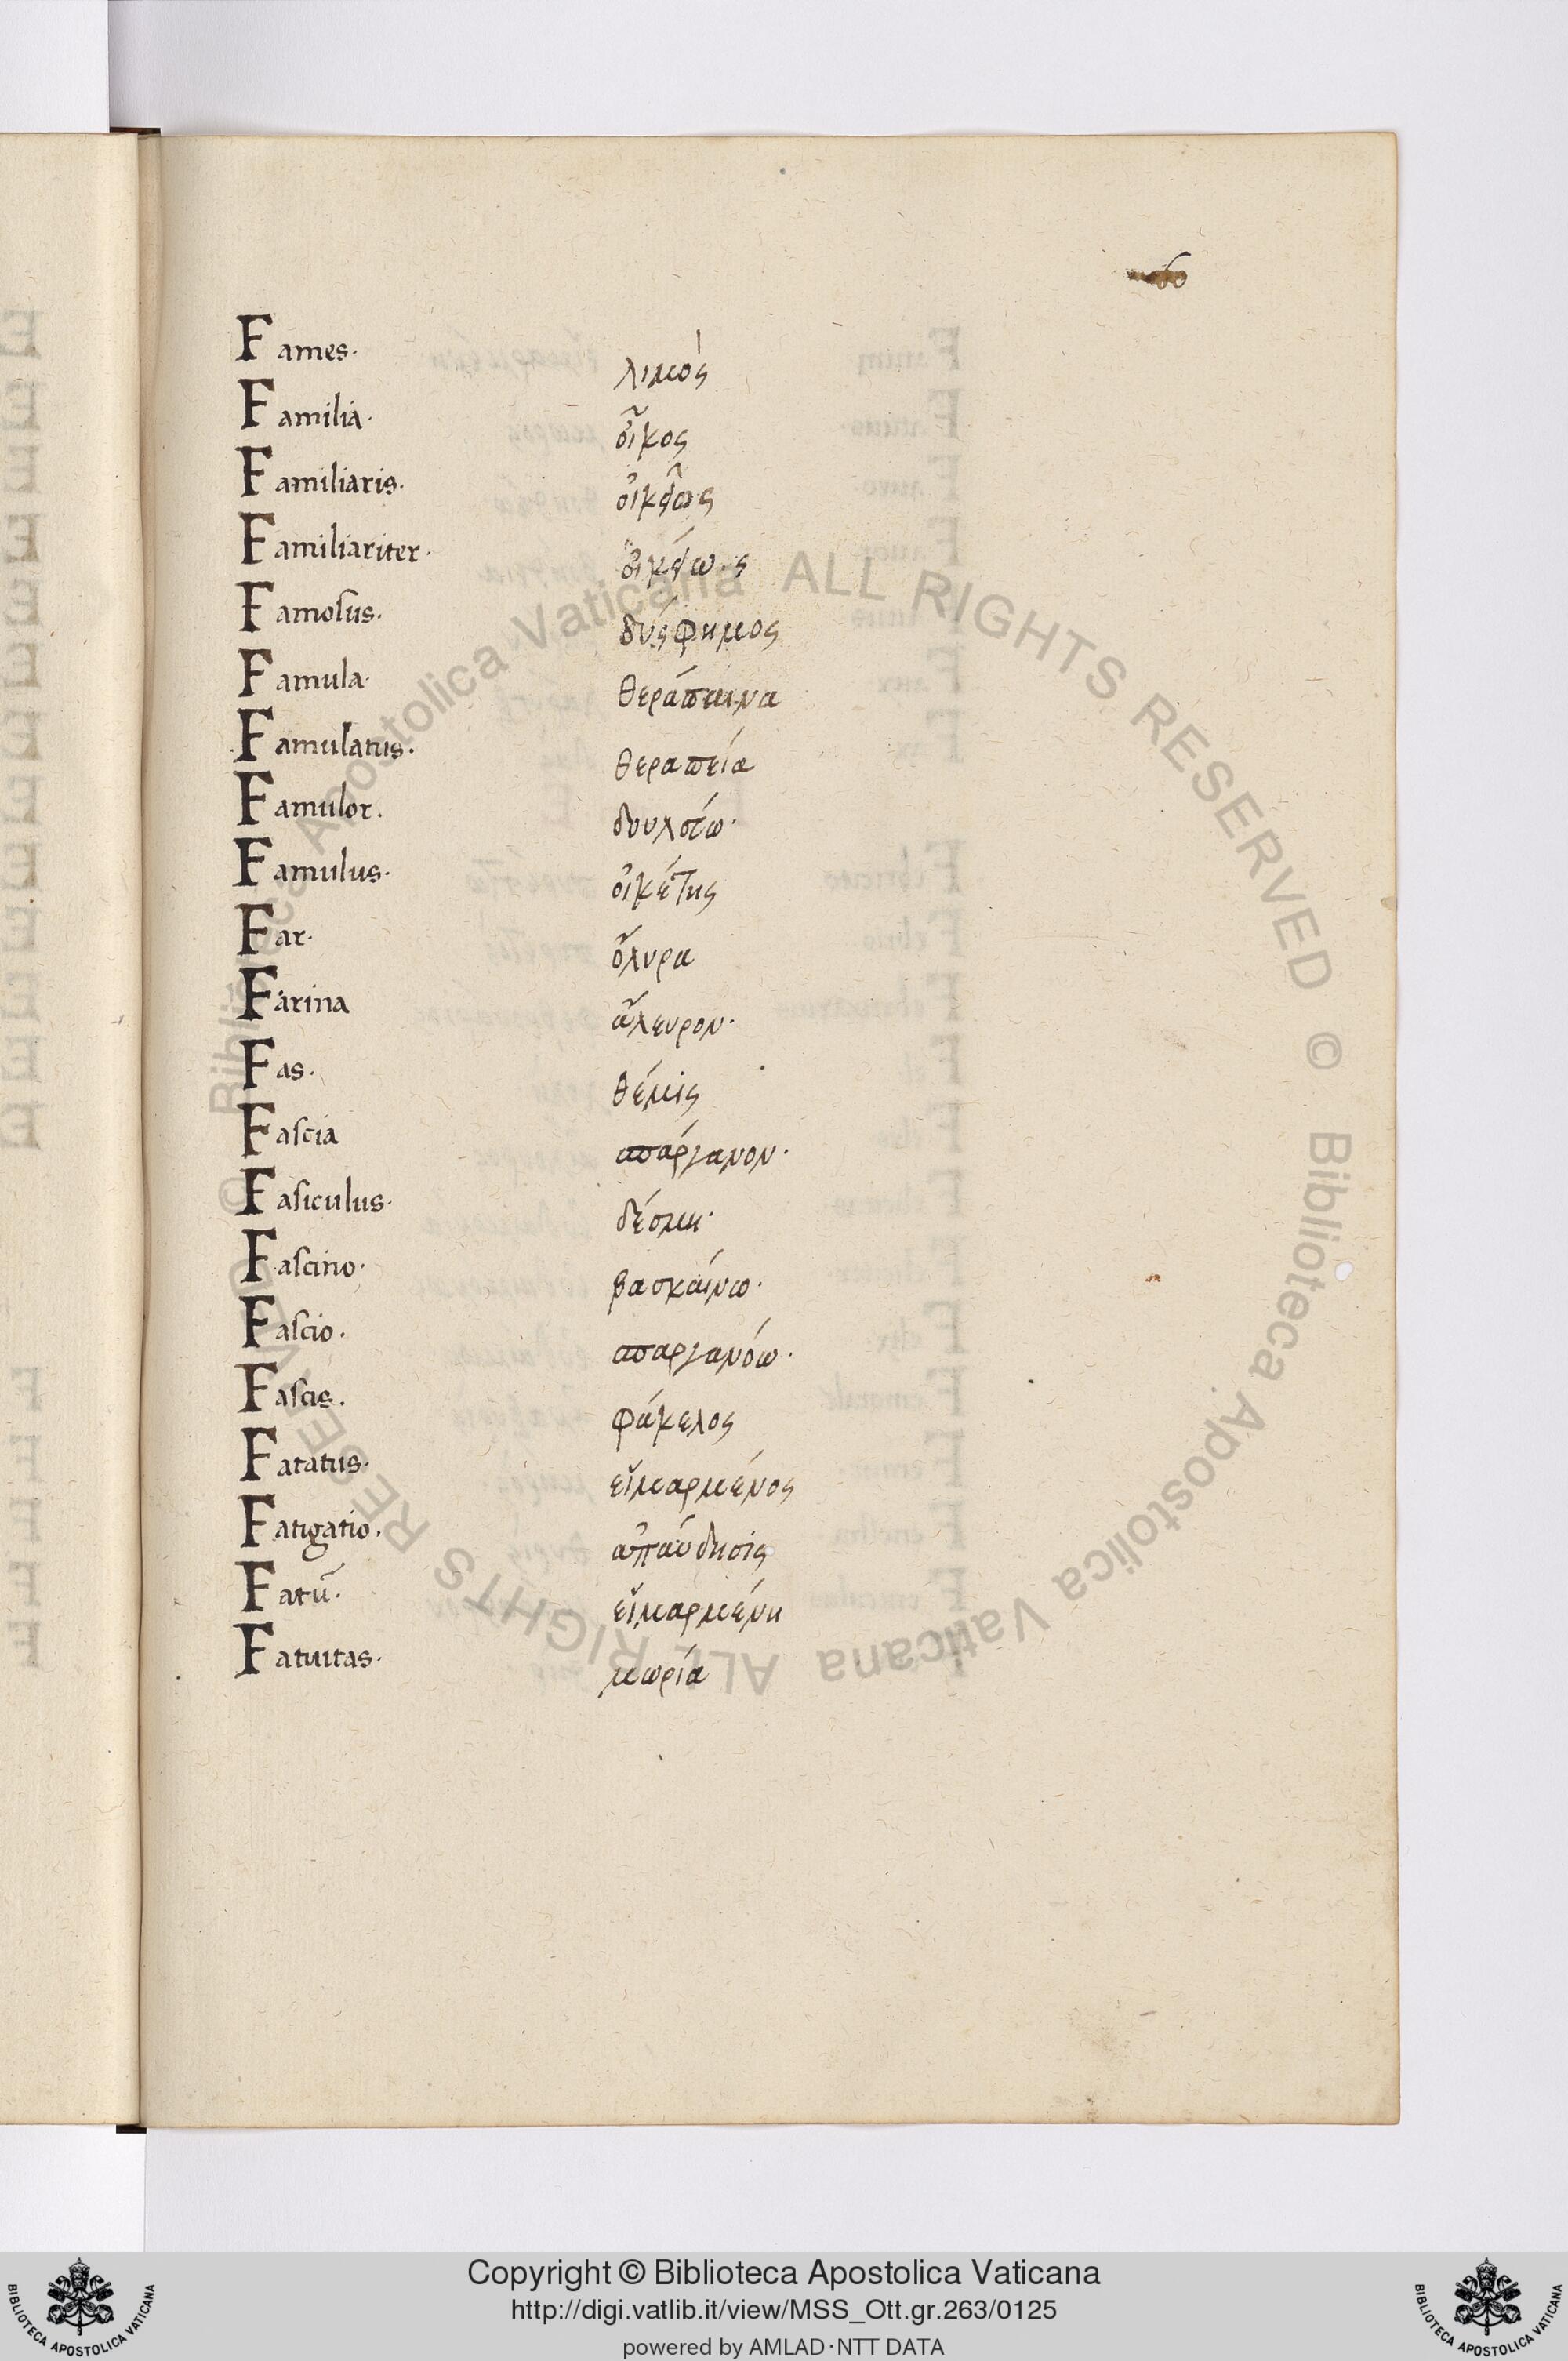 60
Fames· λιμός
Familia· οἶκος
Familiaris· οἰκεῖος
Familiariter· οἰκείως
Famosus· δύςφημος
Famula· θεράπαινα
Famulatus· θεραπεία
Famulor· δουλεύω·
Famulus· οἰκέτης
Far· ὄλυρα
Farina ἄλευρον·
Fas· θέμις
Fascia σπάργανον·
Fasiculus· δέσμη·
Fascino· βασκαίνω·
Fascio· σπαργανόω·
Fascis· φάκελος
Fatatus· εἵμαρμένος
Fatigatio· ἀπαύδησις
Fatū· εἵμαρμένη
Fatuitas· μωρία
© Biblioteca Apostolica Vaticana ALL RIGHTS RESERVED © Biblioteca Apostolica Vaticana ALL RIGHTS RESERVED
Copyright © Biblioteca Apostolica Vaticana
http://digi.vatlib.it/view/MSS_Ott.gr.263/0125
powered by AMLAD·NTT DATA
BIBLIOTECA APOSTOLICA VATICANA
BIBLIOTECA APOSTOLICA VATICANA